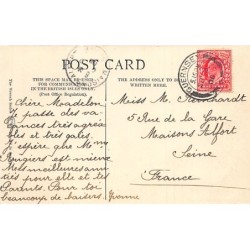 POST CARD
THIS SPACE MAY BE USED
FOR COMMUNICATION
IN THE BRITISH ISLES ONLY.
(Post Office Regulation).
THE ADDRESS ONLY TO BE
WRITTEN HERE.
Chère Madelon
Je passe des va-
cances très agréa-
bles et très gales.
J'espère que Mr
Rougiers est mieux
Mes meilleures amitiés
pour elle et les
Parents. Pour toi
beaucoup de baisers.
Yvonne
Miss M. Reinhardt
5 Rue de la Gare
Maisons Alfort
Seine
France